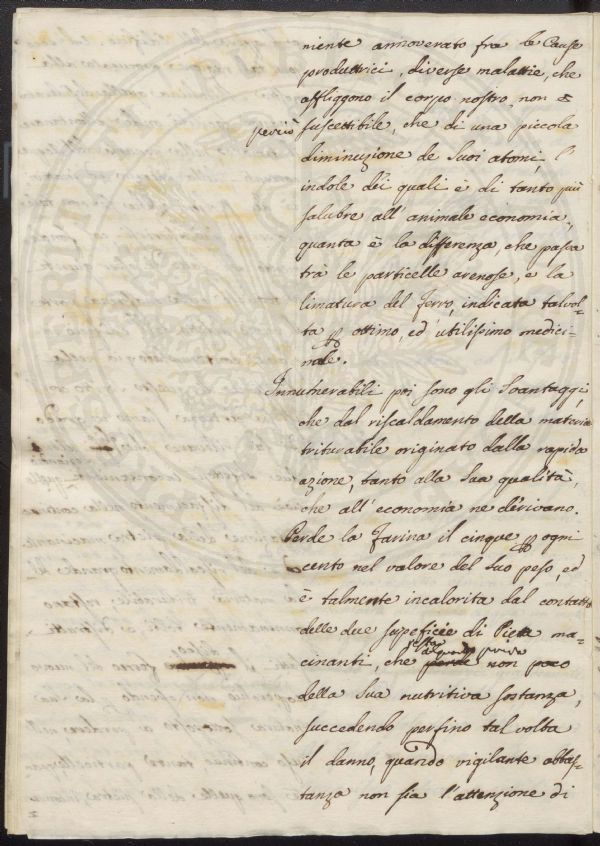 niente annoverato fra le Cause
produttrici, diverse malattie, che
affliggono il corpo nostro, non è
perciò suscettibile, che di una piccola
diminuzione de suoi atomi, l'
indole dei quali è di tanto più
salubre all' animale economia,
quanta è la differenza, che passa
trà le particelle arenose, e la
limatura del Ferro, indicata talvol-
ta ottimo, ed utilissimo medici-
nale.
Innumerabili poi sono gli Svantaggi,
che dal riscaldamento della materia
triturabile originato dalla rapida
azione, tanto alla sua qualità,
che all' economia ne derivano.
Perde la Farina il cinque ogni
cento nel valore del suo peso, ed
è talmente incalorita dal contatto
delle due supeficiée di Pietra ma-
cinanti, che resta priva non poco
della sua nutritiva sostanza,
succedendo perfino tal volta
il danno, quando vigilante abbas-
tanza non sia l'attenzione di